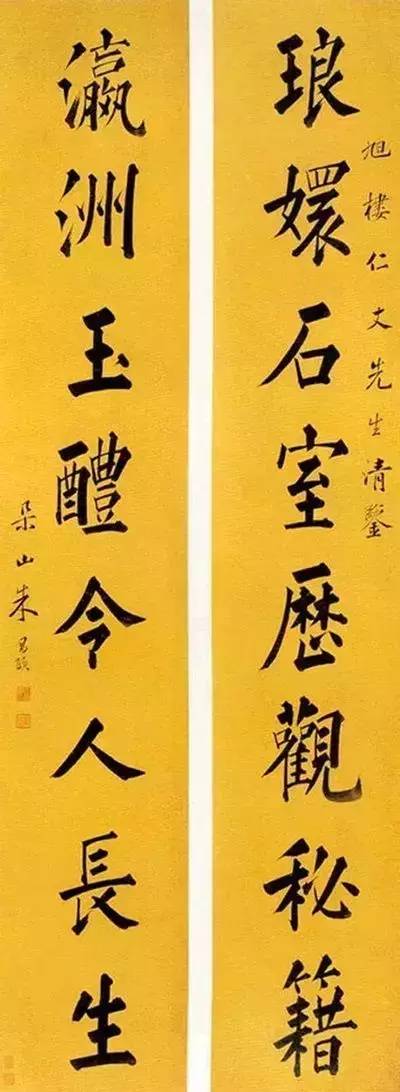 旭樓仁丈先生清鑒
琅嬛石室歷觀秘籍
瀛洲玉醴令人長生
朵山朱昌頤